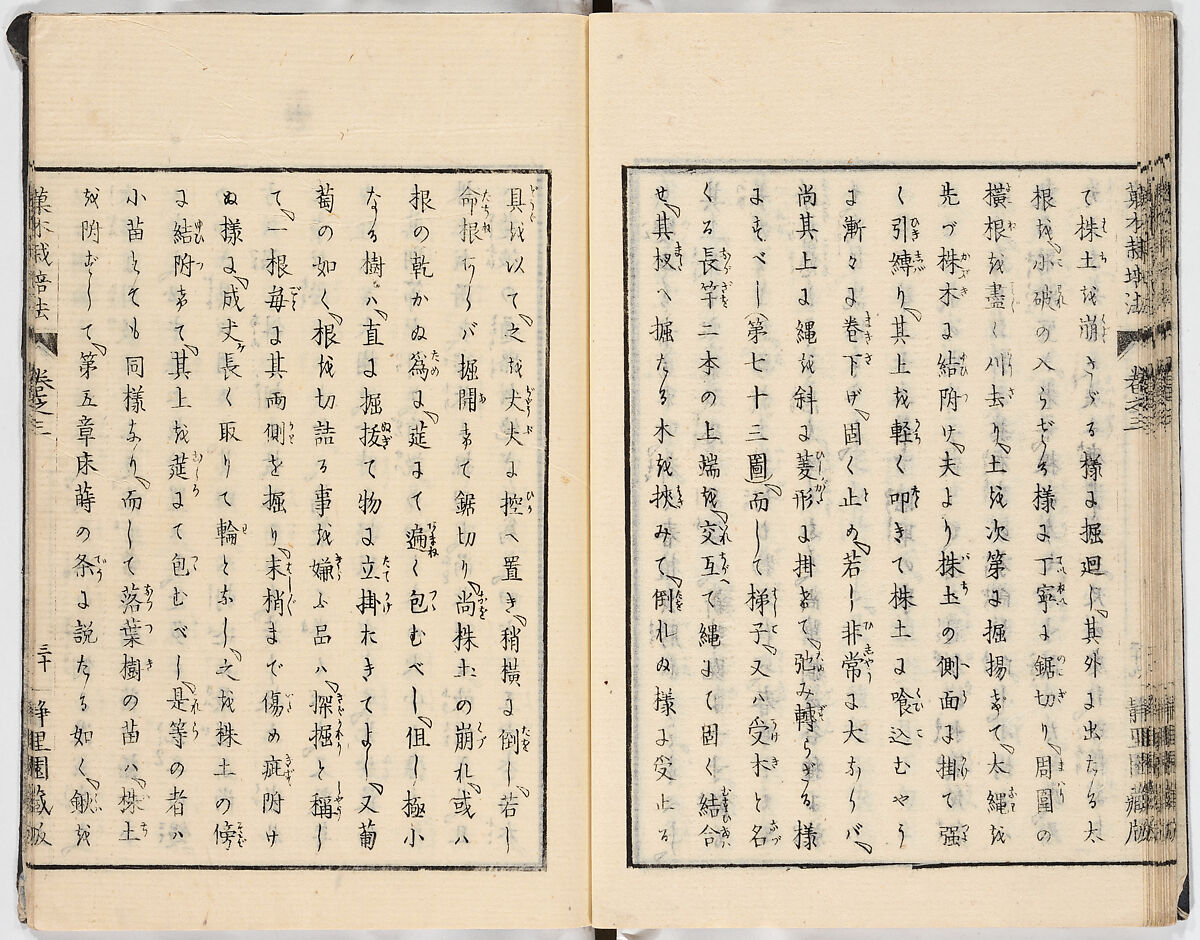 菓木栽培法 巻之三 靜里園藏版
で株土を崩さゞる様に掘廻し、其外に出たる大
根を、氷破の入らざる様に丁寧に鋸切り、周圍の
横根を盡く刈去り、土を次第に掘揚げて、大縄を
先づ株木に結附け、夫より株土の側面に掛て强
く引縛り、其上を軽く叩きて株土に喰込むやう
に漸々に巻下げ、固く止め、若し非常に大ならバ、
尚其上に縄を斜に菱形に掛けて、弛み轉らざる様
にすべし(第七十三圖)、而して梯子、又ハ受木と名
くる長竿二本の上端を、交互て縄にて固く結合
せ、其杈へ掘たる木を挾みて、倒れぬ様に受止る
具を以て、之を犬犬に控へ置き、稍横に倒し、若し
命根あらバ掘開けて鋸切り、尚株土の崩れ、或ハ
根の乾かぬ為に、莚にて遍く包むべし、但し極小
なる樹ハ、直に掘拔て物に立掛おきてよし、又葡
萄の如く、根を切詰る事を嫌ふ品ハ、探掘と稱し
て、一根毎に其両側を掘り、末梢まで傷め疵附け
ぬ様に、成丈ヶ長く取りて輪となし、之を株土の傍
に結附けて、其上を莚にて包むべし、是等の者ハ
小苗とても同様なり、而して落葉樹の苗ハ、株土
を附ずして、第五章床蒔の条に説たる如く、鍬を
菓木栽培法 巻之三 三十 靜里園藏版